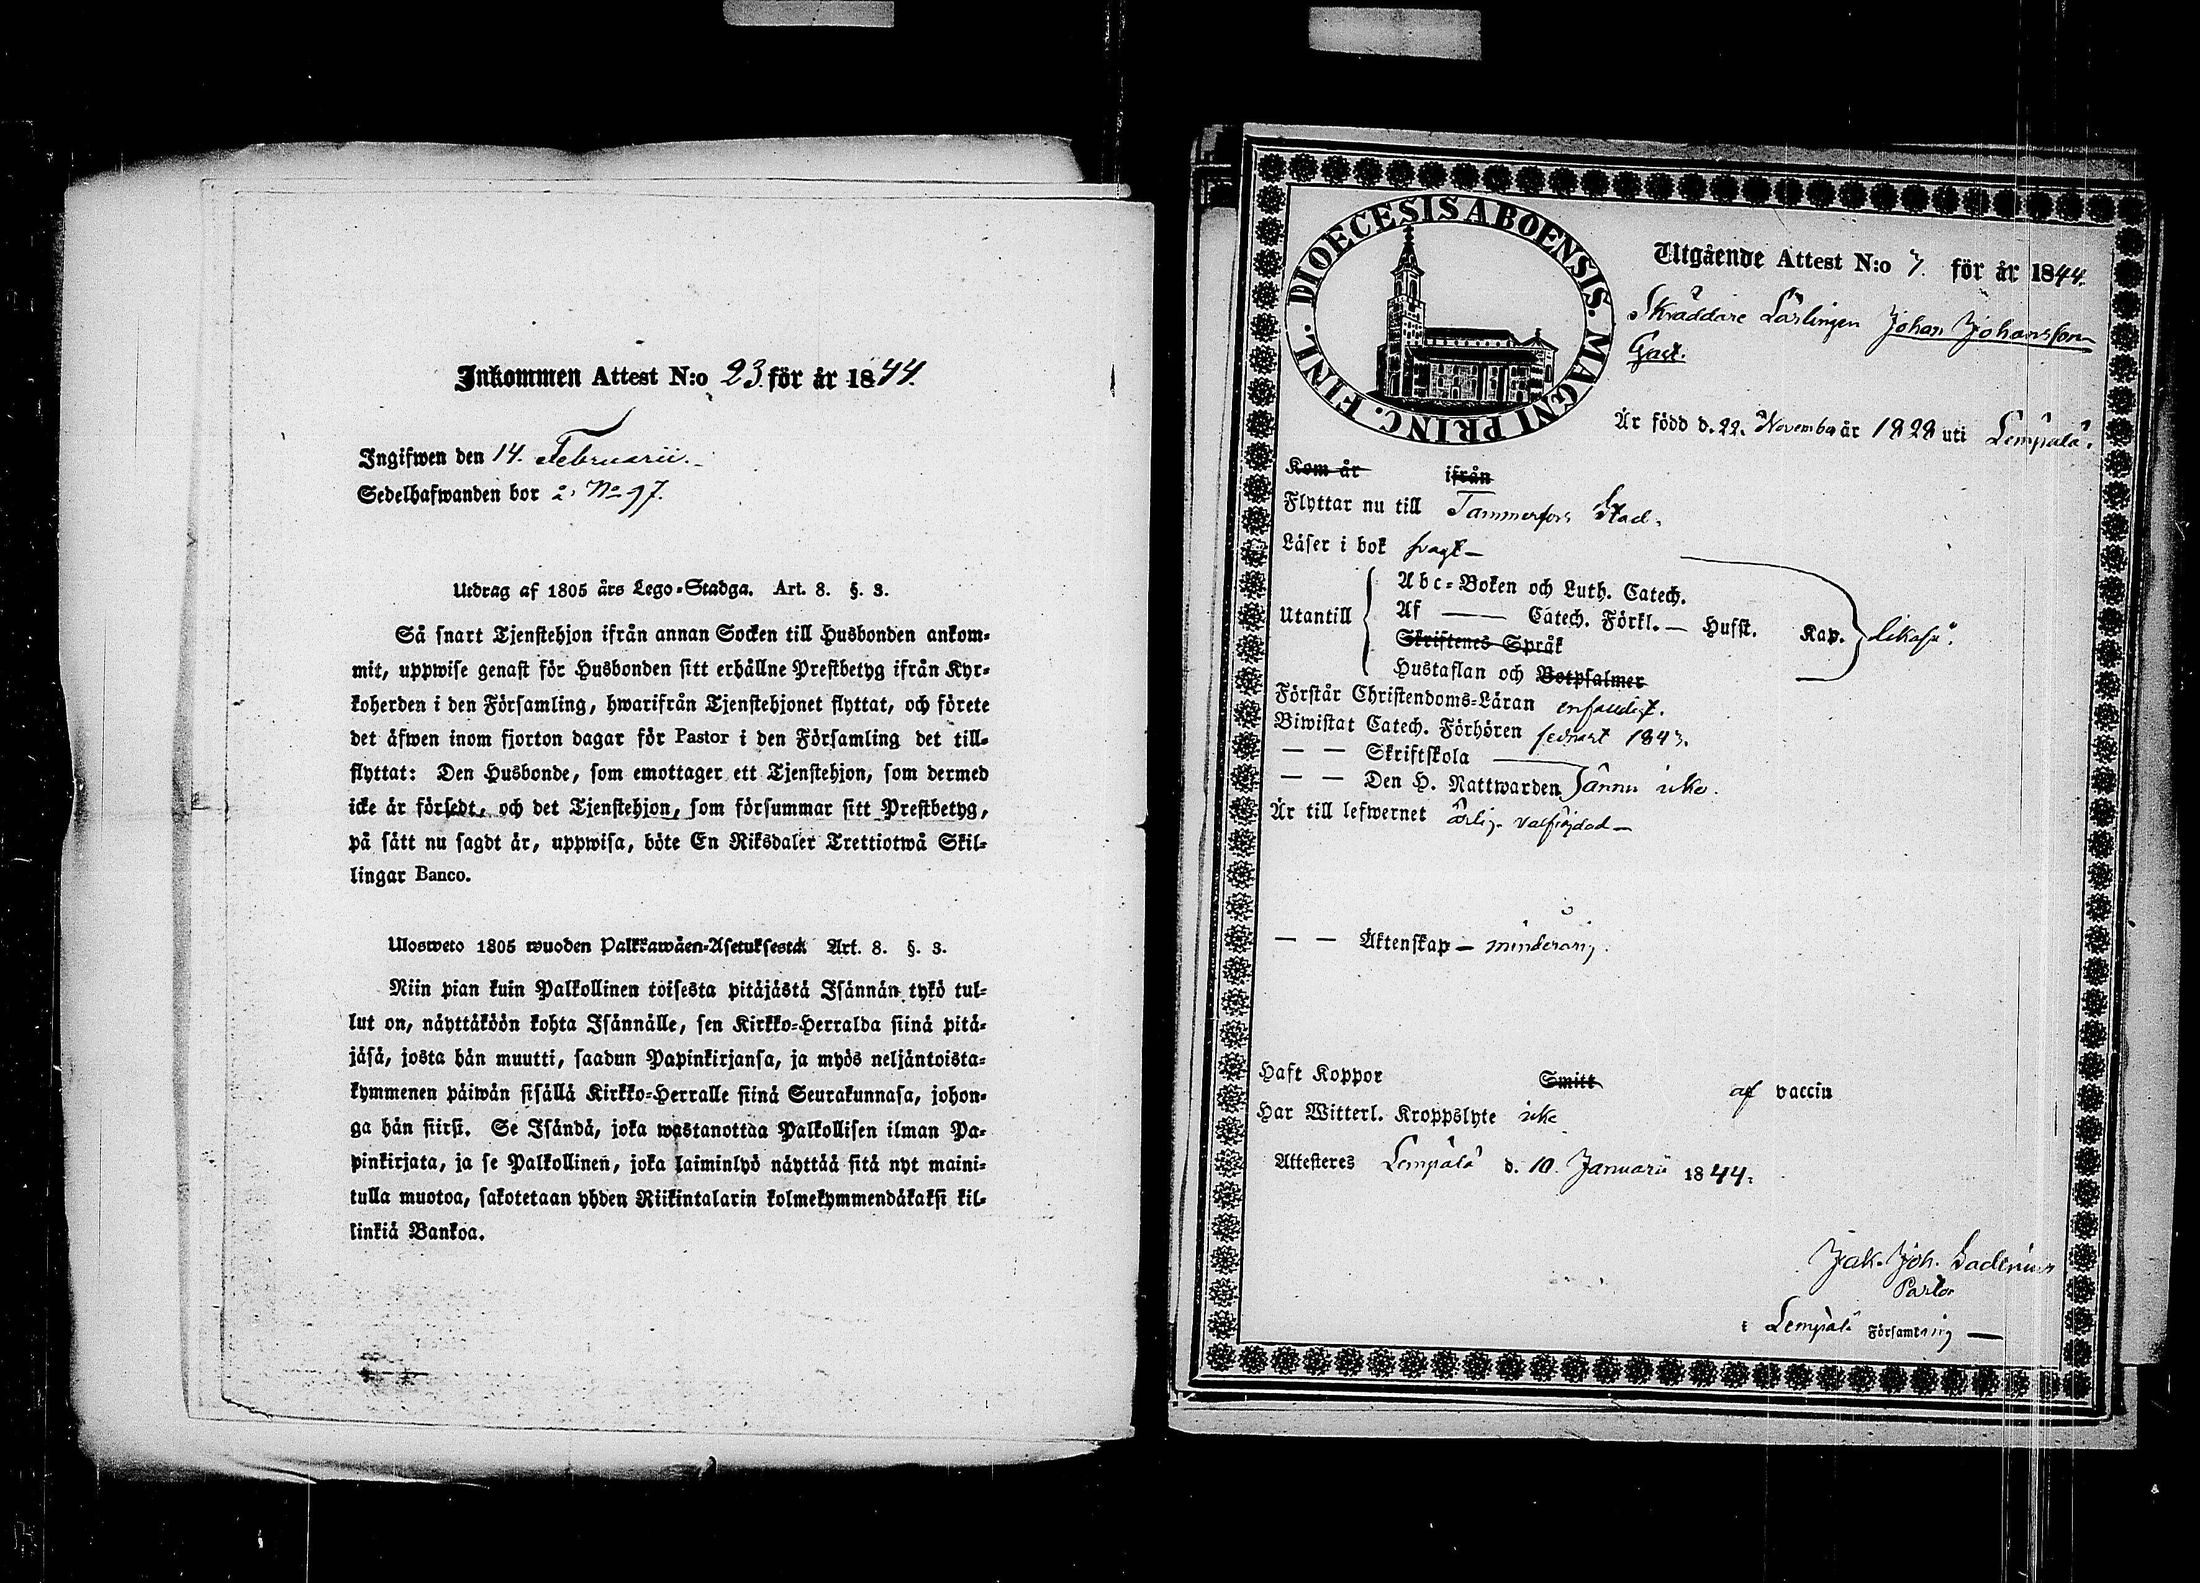 Inkommen Attest N:o 23 för år 1844.
Ingifwen den 14. Februarii.
Sedelhafwanden bor å No 97.
Utdrag af 1805 års Lego-Stadga. Art. 8. §. 3.
Så snart Tjenstehjon ifrån annan Socken till Husbonden ankom-
mit, uppwise genast för Husbonden sitt erhållne Prestbetyg ifrån Kyr-
koherden i den Församling, hwarifrån Tjenstehjonet flyttat, och förete
det äfwen inom fjorton dagar för Pastor i den Församling det till-
flyttat: Den Husbonde, som emottager ett Tjenstehjon, som dermed
icke är försedt, och det Tjenstehjon, som försummar sitt Prestbetyg,
på sätt nu sagdt är, uppwisa, böte En Riksdaler Trettiotwå Skil-
lingar Banco.
Ulosweto 1805 wuoden Palkkawäen-Asetuksesta. Art. 8. §. 3.
Niin pian kuin Palkollinen toisesta pitäjästä Isännän tykö tul-
lut on, näyttäköön kohta Isännälle, sen Kirkko-Herralda siinä pitä-
jäsä, josta hän muutti, saadun Papinkirjansa, ja myös neljäntoista-
kymmenen päiwän sisällä Kirkko-Herralle siinä Seurakunnasa, johon-
ga hän siirsi. Se Isändä, joka wastanottaa Palkollisen ilman Pa-
pinkirjata, ja se Palkollinen, joka laiminlyö näyttää sitä nyt maini-
tulla muotoa, sakotetaan yhden Riikintalarin kolmekymmendäkaksi kil-
linkiä Bankoa.
DIOECESIS ABOENSIS. MAGNI PRINC. FINL.
Utgående Attest N:o 7. för år 1844.
Skräddare Lärlingen Johan Johansson
Gast.
Är född d. 22. November år 1828 uti Lempälä.
Kom år ifrån
Flyttar nu till Tammerfors Stad.
Läser i bok svagt
Utantill
Abc-Boken och Luth. Catech.
Af — Catech. Förkl. — Husst. Kap. likaså.
Skriftenes Språk
Hustaflan och Botpsalmer
Förstår Christendoms-Läran enfaldigt.
Biwistat Catech. Förhören sednast 1843.
— — Skriftskola —
— — Den H. Nattwarden ännu icke.
Är till lefwernet ärlig. välfrägdad —
— — Äktenskap — minderårig.
Haft Koppor Smitt af vaccin
Har Witterl. Kroppslyte icke
Attesteres Lempälä d. 10. Januarii 1844.
Jak. Joh. Gadenius
Pastor
i Lempälä Församling —